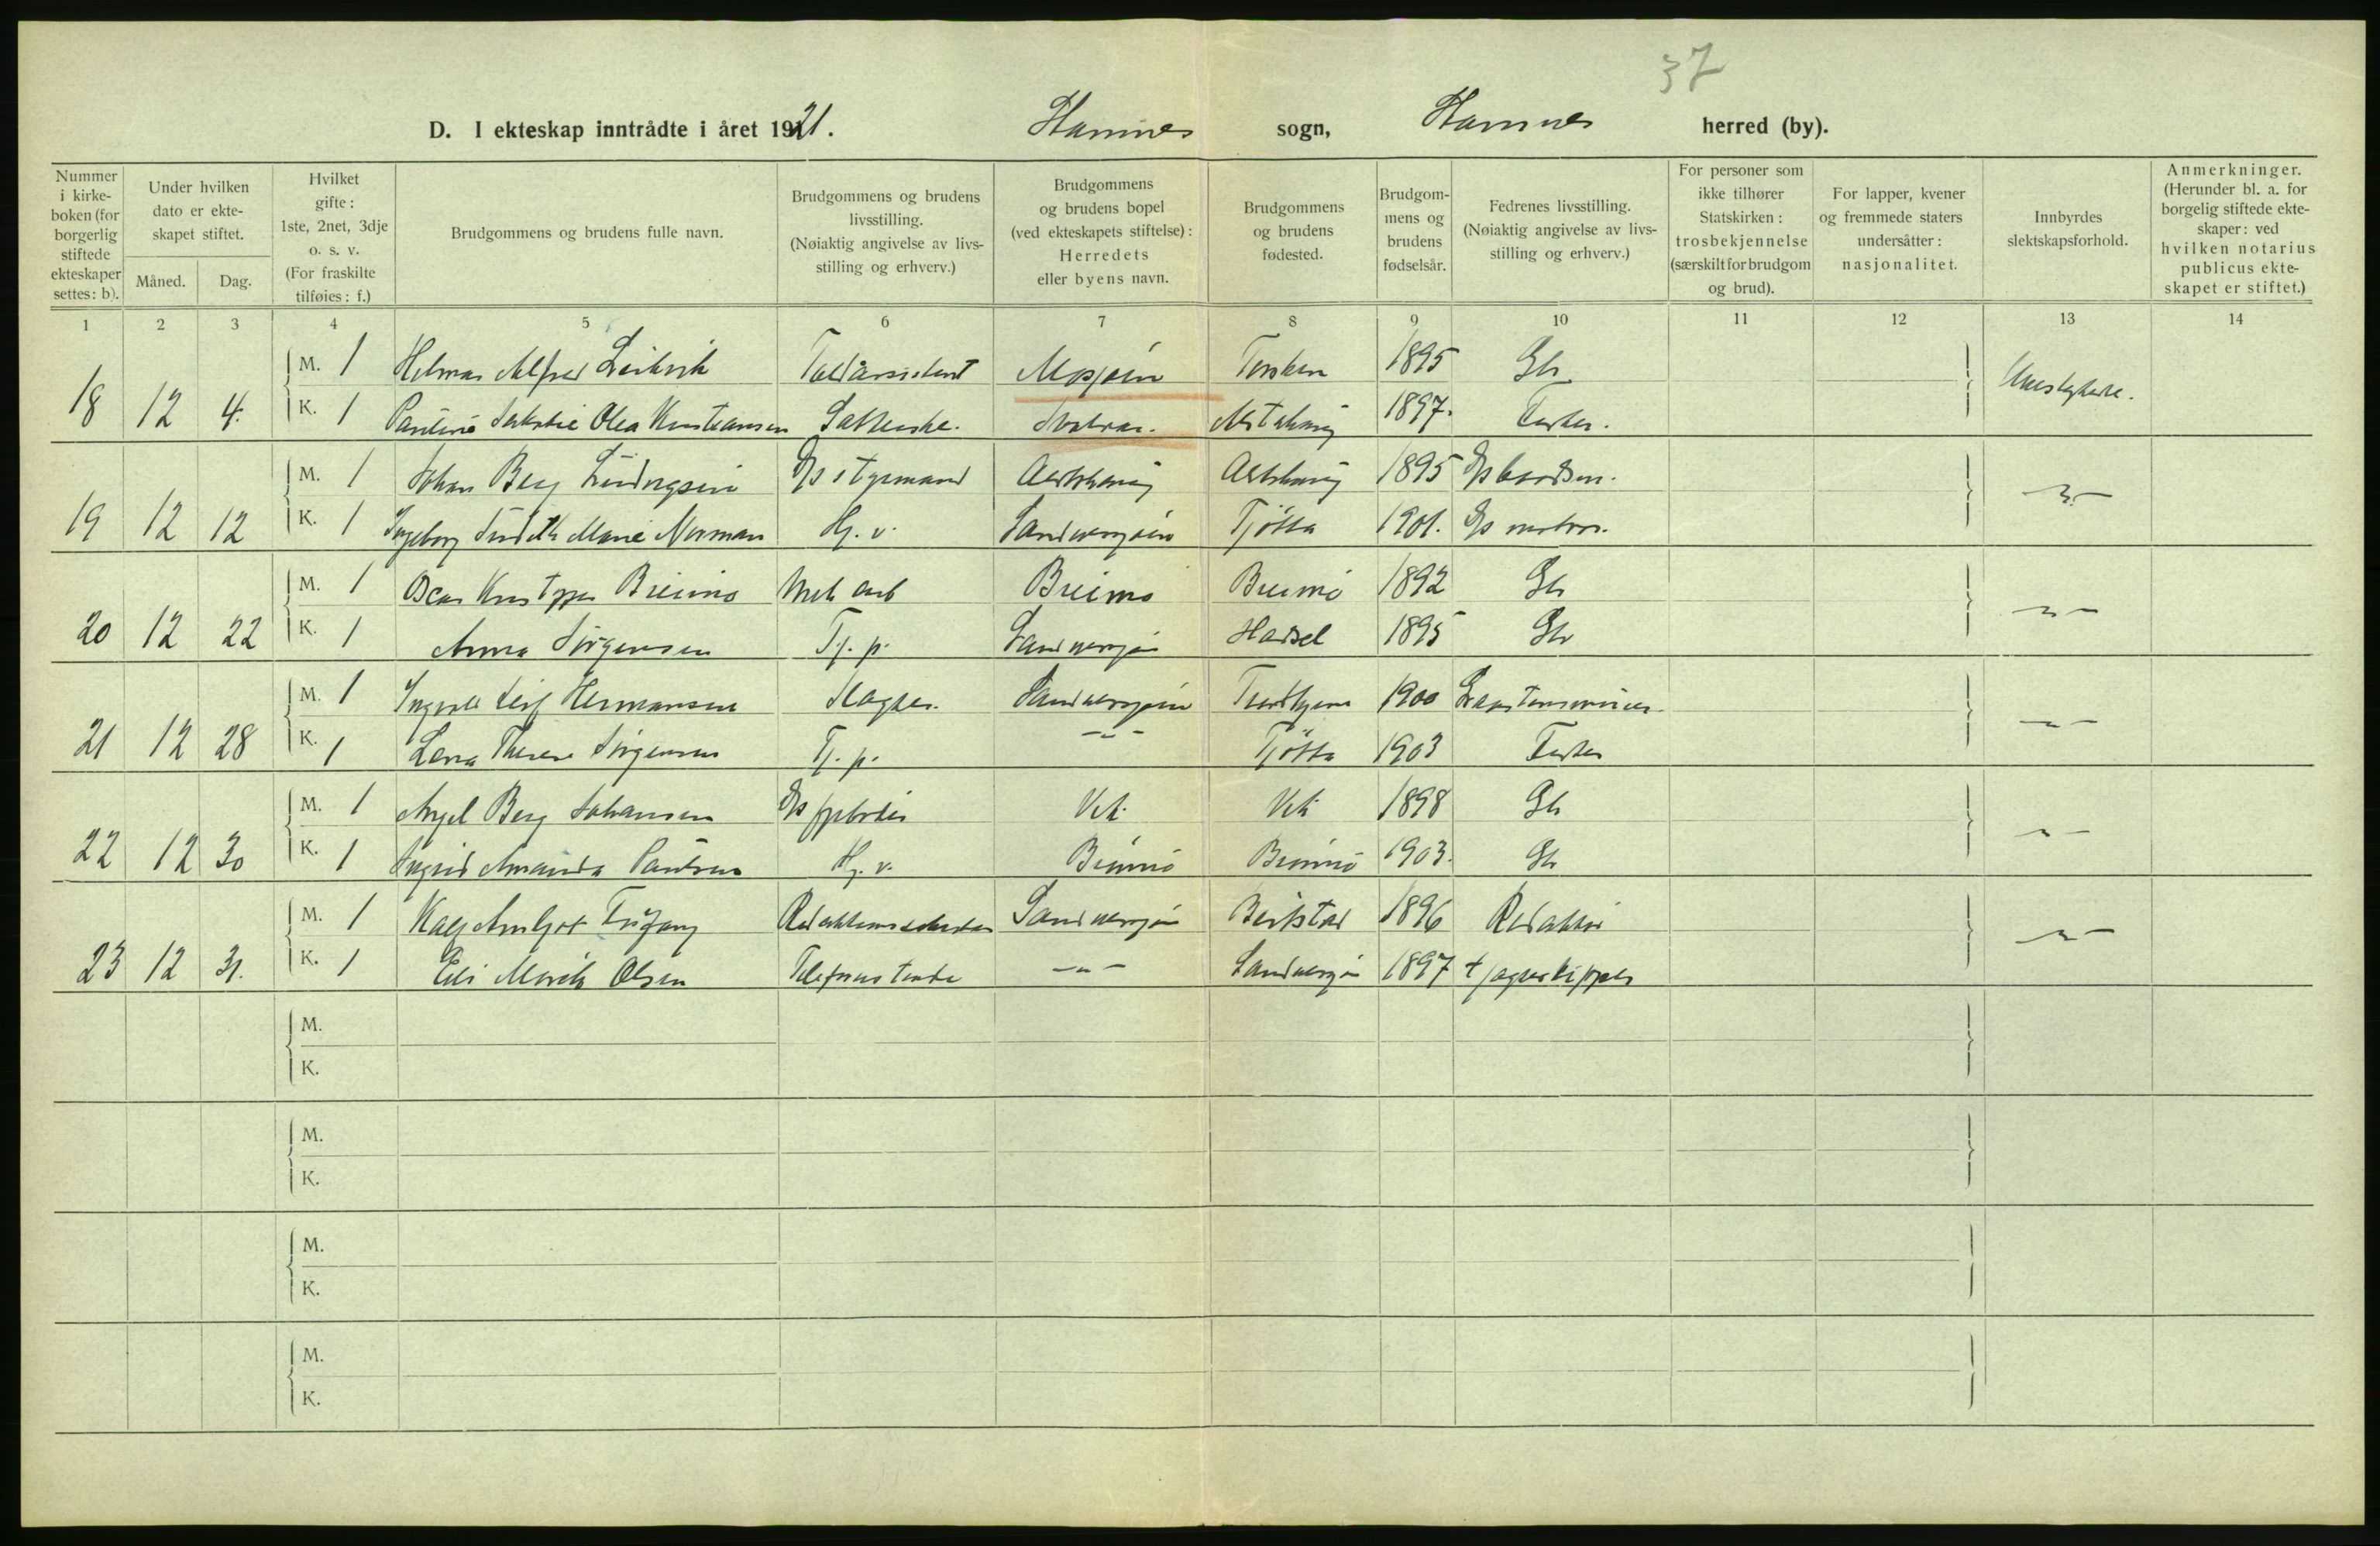 37
D. I ekteskap inntrådte i året 1921. Stamnes sogn, Stamnes herred (by).
Nummer i kirkeboken (for borgerlig stiftede ekteskaper settes: b).
Under hvilken dato er ekteskapet stiftet.
Måned. Dag.
Hvilket gifte: 1ste, 2net, 3dje o. s. v. (For fraskilte tilføies: f.)
Brudgommens og brudens fulle navn.
Brudgommens og brudens livsstilling. (Nøiaktig angivelse av livsstilling og erhverv.)
Brudgommens og brudens bopel (ved ekteskapets stiftelse): Herredets eller byens navn.
Brudgommens og brudens fødested.
Brudgommens og brudens fødselsår.
Fedrenes livsstilling. (Nøiaktig angivelse av livsstilling og erhverv.)
For personer som ikke tilhører Statskirken: trosbekjennelse (særskilt for brudgom og brud).
For lapper, kvener og fremmede staters undersåtter: nasjonalitet.
Innbyrdes slektskapsforhold.
Anmerkninger. (Herunder bl. a. for borgelig stiftede ekteskaper: ved hvilken notarius publicus ekteskapet er stiftet.)
1 2 3 4 5 6 7 8 9 10 11 12 13 14
M. 1 Hilmar Alfred Toldassistent Mosjøen Torsken 1895 Gb
18 12 4. Ubeslektede.
K. 1 Olea Kristiansen Svolvær. Alstahaug 1897. Fisker.
M. 1 Johan Berg D/s styrmand Alstahaug Alstahaug 1895 D/s baadsm.
19 12 12 -"-
K. 1 Ingeborg Marie Norman Hj. v. Sandnessjøen Tjøtta 1901. D/s matros.
M. 1 Oscar Brønnø 1892 Gb
20 12 22 -"-
K. 1 Anna Jørgensen Tj. p. Sandnessjøen Hadsel 1895 Gb
M. 1 Leif Hermansen Sandnessjøen Trondhjem 1900
21 12 28 -"-
K. 1 Lena Therese Jørgensen Tj. p. -"- Tjøtta 1903 Fisker
M. 1 Berg Johansen D/s fyrbøter 1898 Gb
22 12 30 -"-
K. 1 Ingrid Amanda Paulsen Hj. v. Brønnø Brønnø 1903. Gb
M. 1 Redaktionssekretær Sandnessjøen Beitstad 1896 Redaktør
23 12 31. -"-
K. 1 Olsen -"- Sandnessjøen 1897 + jagteskipper
M.
K.
M.
K.
M.
K.
M.
K.